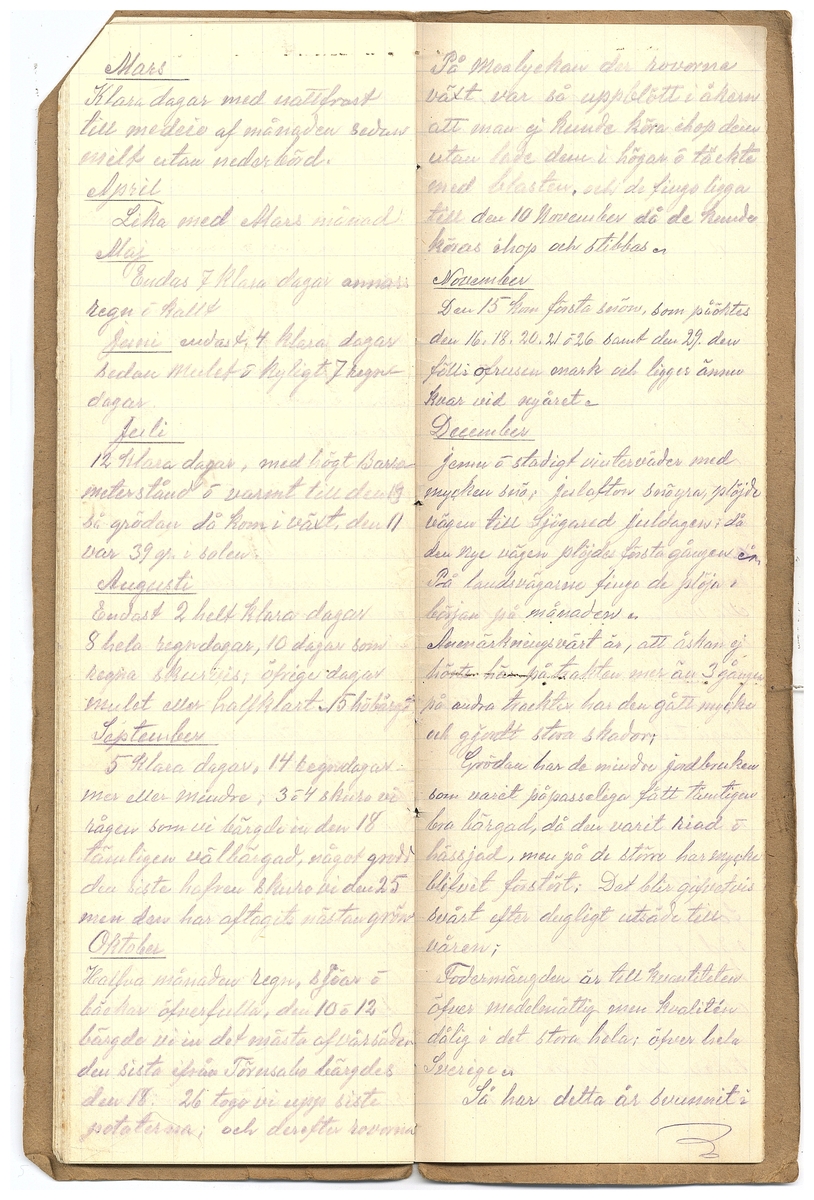 Mars
Klara dagar med nattfrost
till medeio af mångden sedan
milt utan nederbörd.
April
Lika med Mars månad
Maj
Endas 7 klara dagar annars
regn ö kallt
Juni endast, 4 klara dagar
sedan mulet ö kyligt 7 regn-
dagar
Juli
12 klara dagar, med högt Baro-
meterstånd ö varmt till den 19
så grödan då kom i växt. den 11
var 39 gr. i solen.
Augusti
Endast 2 helt klara dagar
8 hela regndagar, 10 dagar som
regna skurvis; öfrige dagar
mulet eller halfklart. 15 höbärgd
September
5 klara dagar, 14 regndagar
mer eller mindre; 3 ö 4 skuro vi
rågen som vi bärgde in den 18
tämligen välbärgad, något grodd
den siste hafren skuro vi den 25
men den har aftagits nästan grön
Oktober
Halfva månaden regn, sjöar ö
bäckar öfverfulla, den 10 ö 12
bärgde vi in det mästa af vårsäden
den sista ifrån Törnsabo bärgdes
den 18. 26 togo vi upp siste
potaterna; och derefter rovorna
På Moalyckan der rovorna
växt var så uppblött i åkern
att man ej kunde köra ihop dem
utan lade dem i högar ö täckte
med blasten, och de fingo ligga
till den 10 November då de kunde
köras ihop och stibbas.
November
Den 15 kom första snön, som påöktes
den 16. 18. 20. 21 ö 26 samt den 29. den
fölls öfrusen mark och ligger ännu
kvar vid nyåret.
December
Jemn ö stadigt vinterväder med
mycken snö; julafton snöyra, plöjde
vägen till Sjögared juldagen; då
den nye vägen plöjdes första gången
På landsvägarne fingo de plöja i
början på månaden.
Anmärkningsvärt är, att åskan ej
hörts här på trakten mer än 3 gånger
på andra trakter har den gått mycke
och gjordt stora skador;
Grödan har de mindre jordbruken
som varit påpasseliga fått tämligen
bra bärgad, då den varit kriad ö
hässjad, men på de större har mycke
blifvit förstört; Det blir gifvetvis
svårt efter dugligt utsäde till
våren;
Fodermängden är till kvantiteten
öfver medelmåttig men kvalitén
dålig i det stora hela; öfver hela
Sverige.
Så har detta år svunnit i